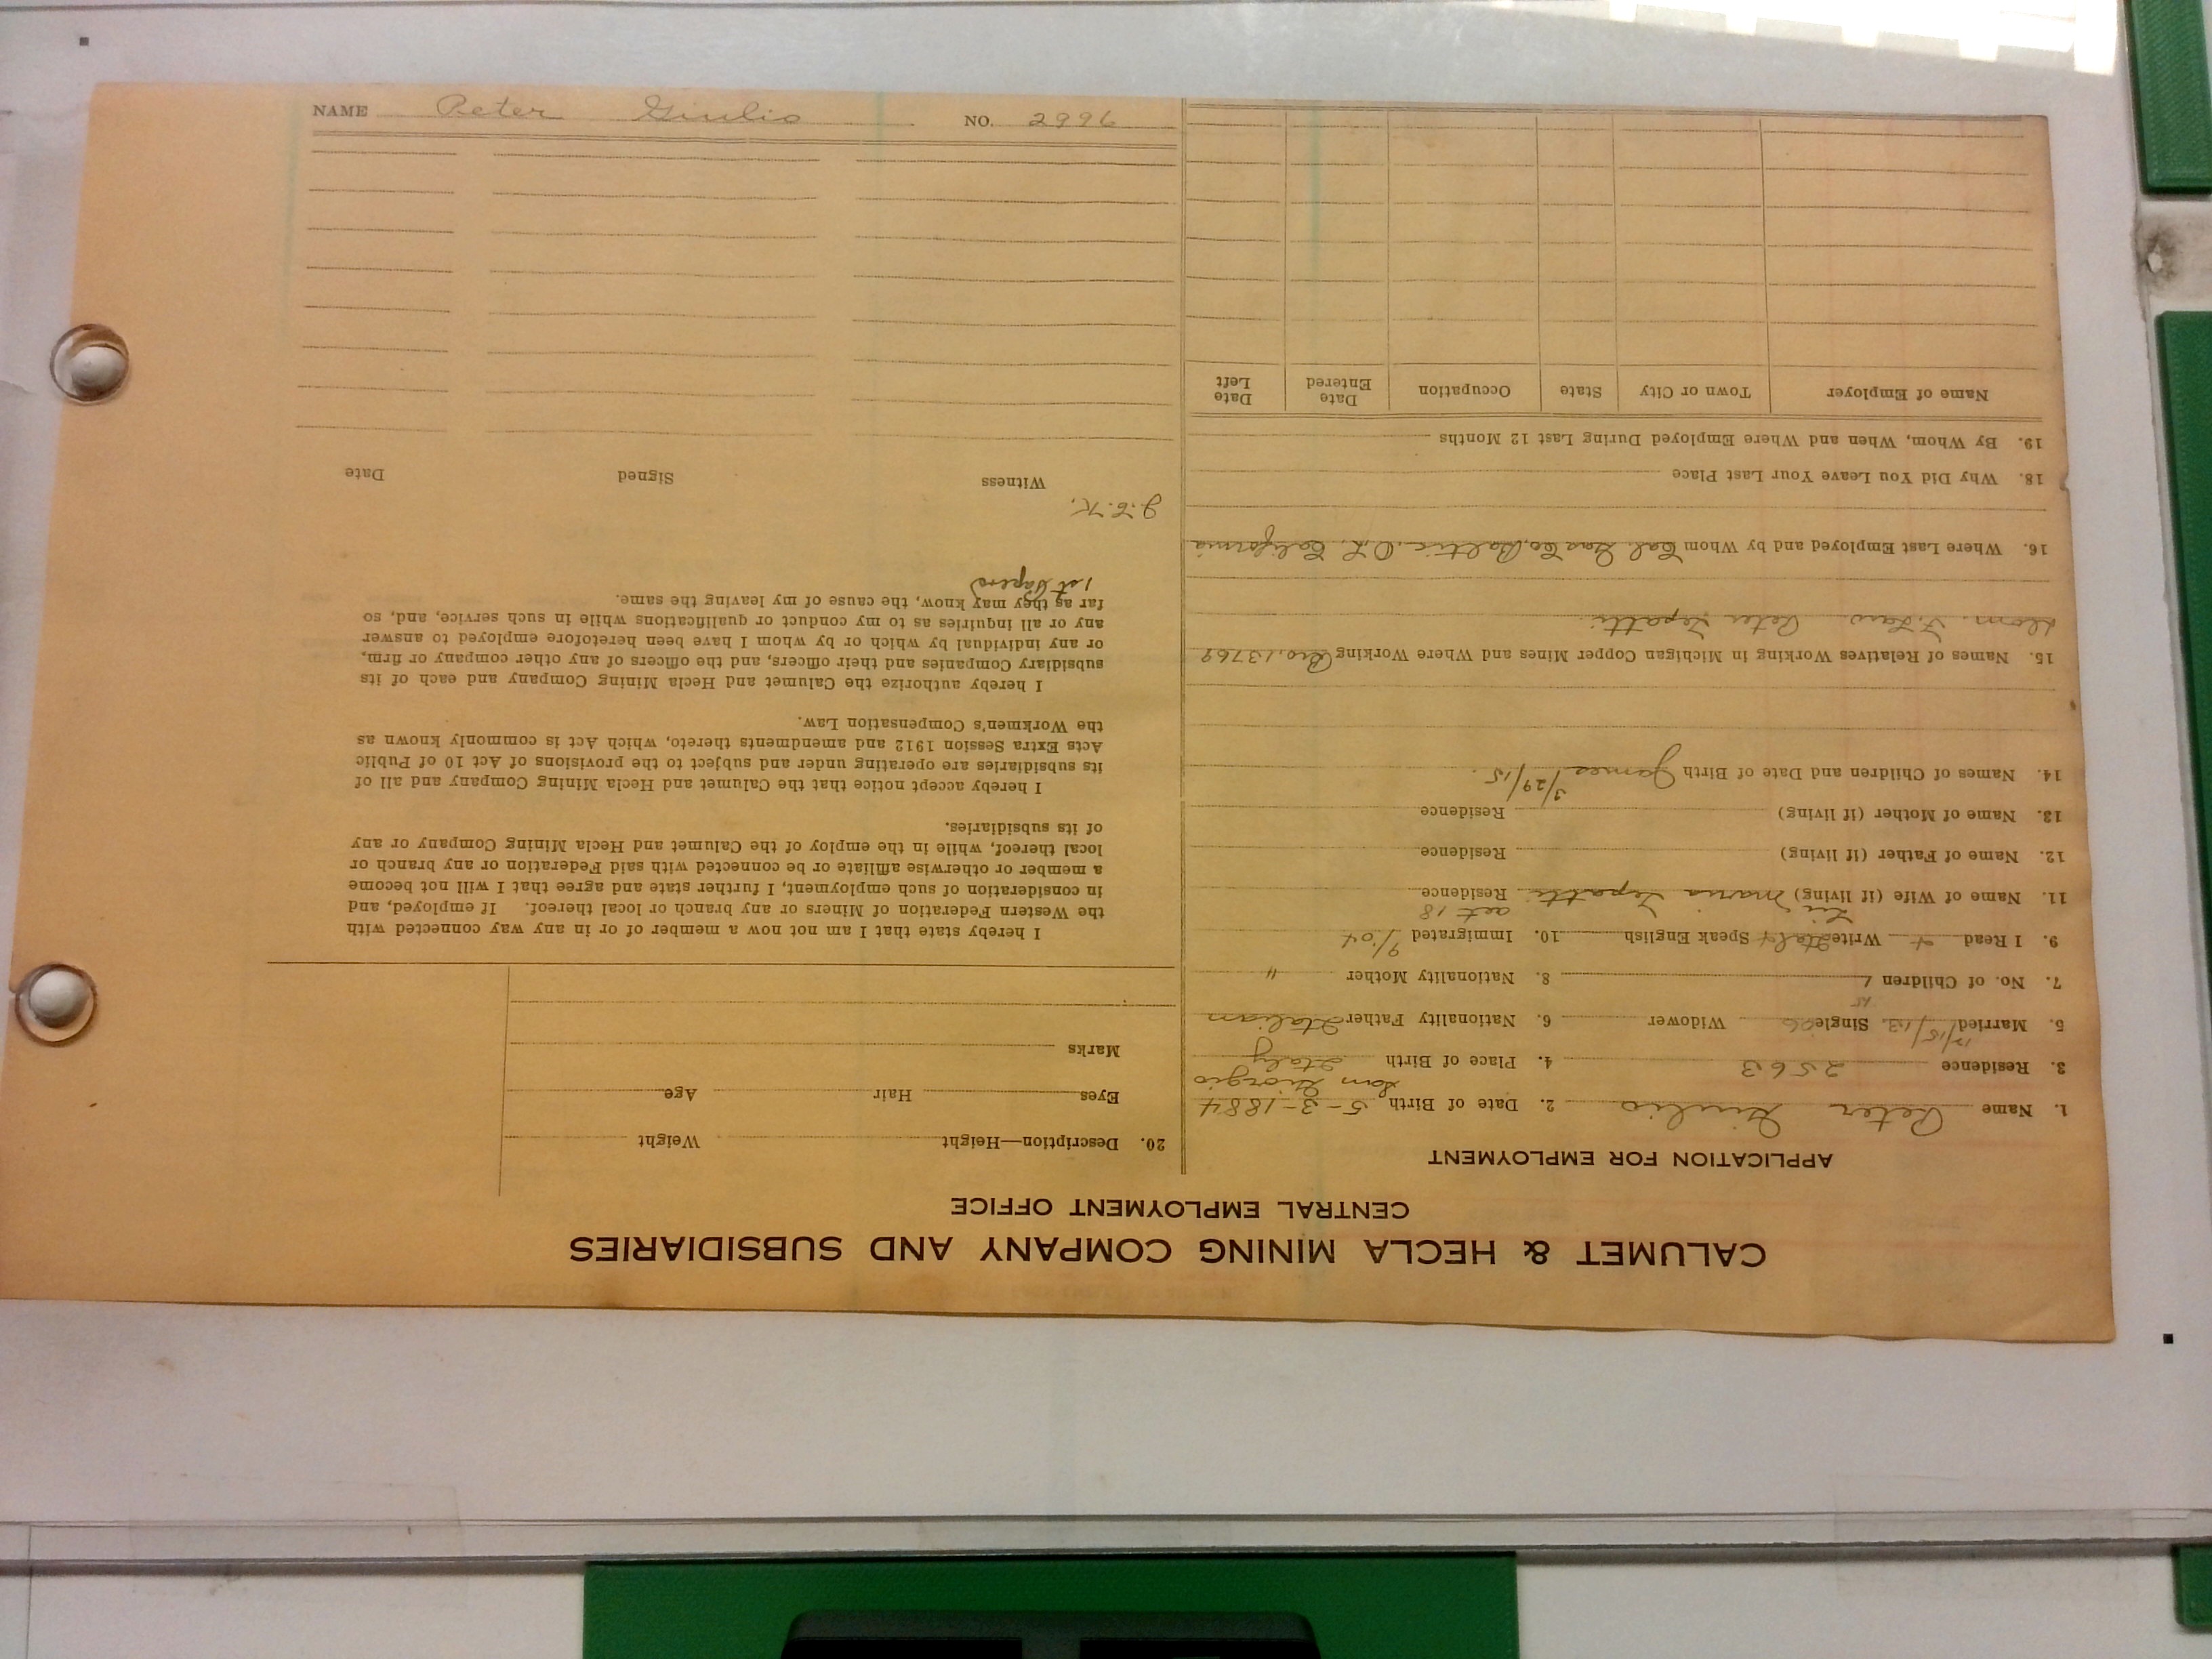 CALUMET & HECLA MINING COMPANY AND SUBSIDIARIES
CENTRAL EMPLOYMENT OFFICE
APPLICATION FOR EMPLOYMENT
1. Name Peter Giulio 2. Date of Birth 5-3-1884
San Giorgio
3. Residence 2563 4. Place of Birth Italy
5. Married Single Widower 6. Nationality Father Italian
7. No. of Children 1 8. Nationality Mother "
9. I Read + Write Ital + Speak English 10. Immigrated 9/04
act 18
11. Name of Wife (if living) Maria Residence
12. Name of Father (if living) Residence
13. Name of Mother (if living) Residence
14. Names of Children and Date of Birth James 3/29/15.
15. Names of Relatives Working in Michigan Copper Mines and Where Working Bro. 13769
Dom. F. Law Peter
16. Where Last Employed and by Whom Cal. Gas Co, Baltic, O. L. California
18. Why Did You Leave Your Last Place
19. By Whom, When and Where Employed During Last 12 Months
Name of Employer Town or City State Occupation Date Entered Date Left
20. Description—Height Weight
Eyes Hair Age
Marks
I hereby state that I am not now a member of or in any way connected with
the Western Federation of Miners or any branch or local thereof. If employed, and
in consideration of such employment, I further state and agree that I will not become
a member or otherwise affiliate or be connected with said Federation or any branch or
local thereof, while in the employ of the Calumet and Hecla Mining Company or any
of its subsidiaries.
I hereby accept notice that the Calumet and Hecla Mining Company and all of
its subsidiaries are operating under and subject to the provisions of Act 10 of Public
Acts Extra Session 1912 and amendments thereto, which Act is commonly known as
the Workmen's Compensation Law.
I hereby authorize the Calumet and Hecla Mining Company and each of its
subsidiary Companies and their officers, and the officers of any other company or firm,
or any individual by which or by whom I have been heretofore employed to answer
any or all inquiries as to my conduct or qualifications while in such service, and, so
far as they may know, the cause of my leaving the same.
1st Papers
J.E.K.
Witness Signed Date
NAME Peter Giulio NO. 2996